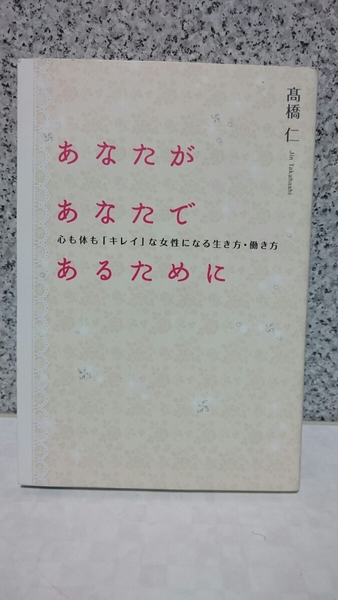 あなたが
あなたで
心も体も「キレイ」な女性になる生き方・働き方
あるために
髙橋 仁
Jin Takahashi